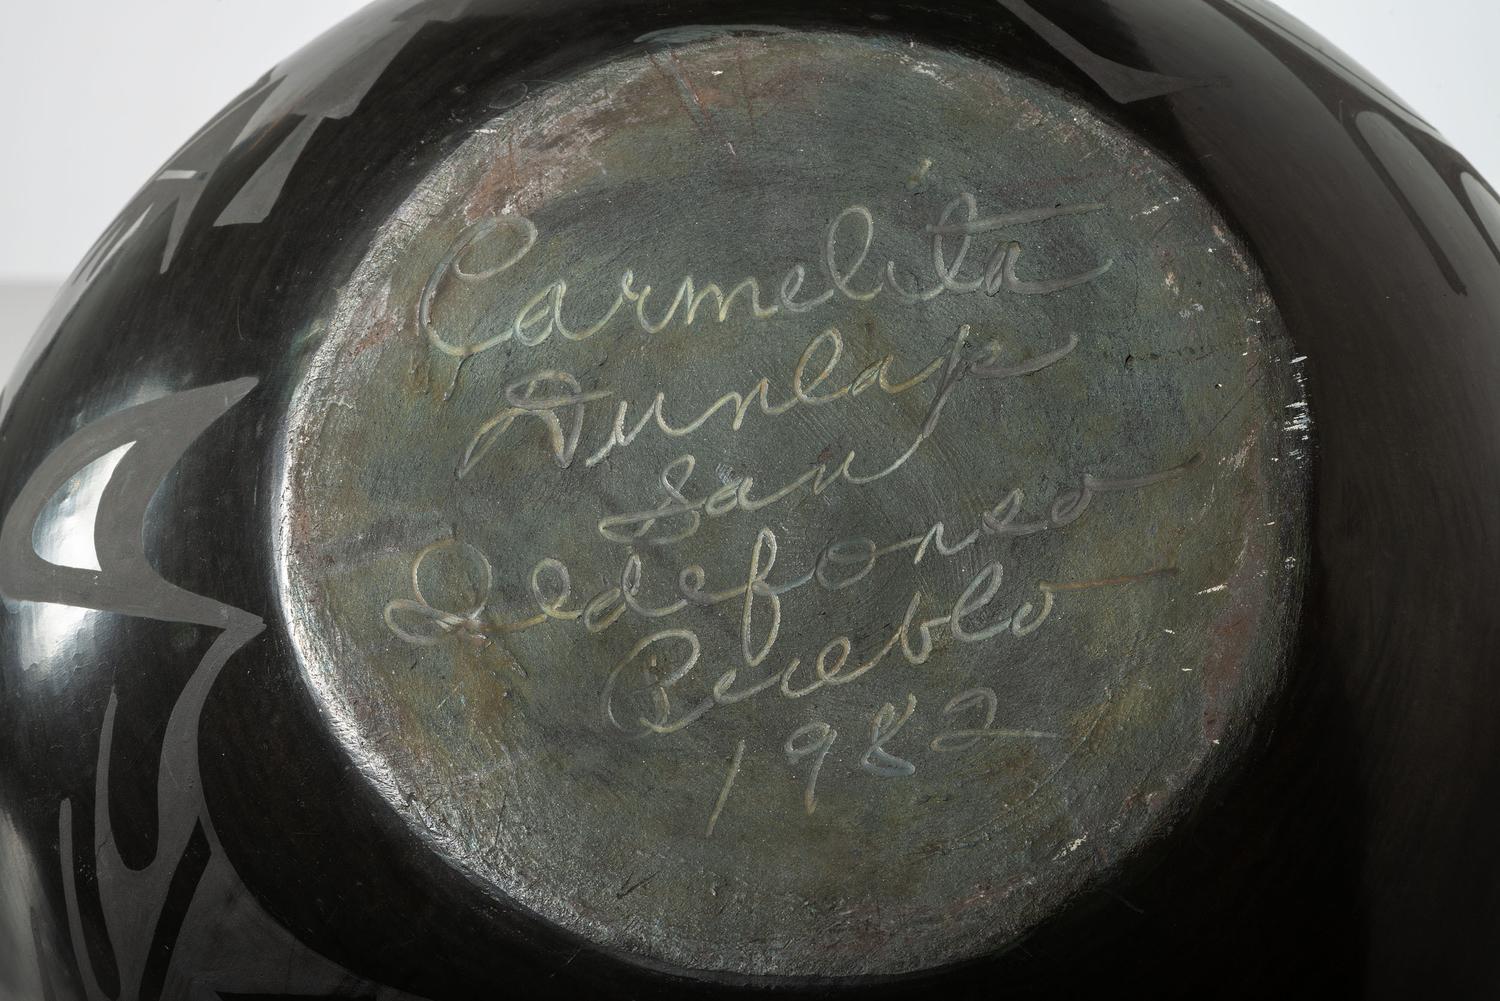 Carmelita
Dunlap
San
Ildefonso
Pueblo
1982